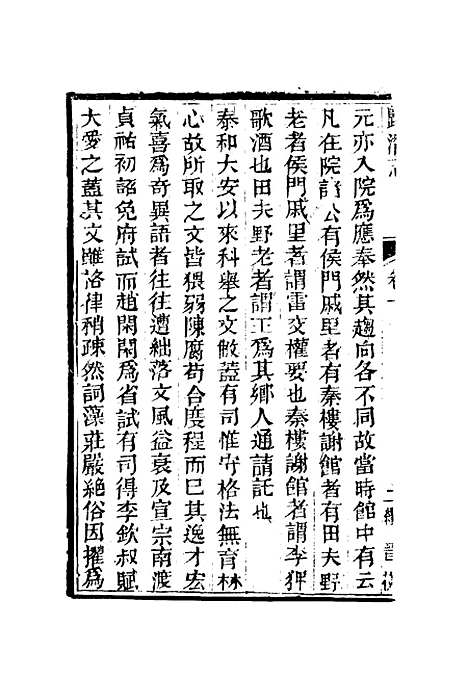 歸潛志
卷一
元亦入院爲應奉然其趨向各不同故當時館中有云
凡在院諸公有侯門戚里者有秦樓謝館者有田夫野
老者侯門戚里者謂雷交權要也秦樓謝館者謂李狎
歌酒也田夫野老者謂王爲其鄉人通請託也
泰和大安以來科舉之文敝蓋有司惟守格法無育材
心故所取之文皆猥弱陳腐苟合度程而已其逸才宏
氣喜爲奇異語者往往遭絀落文風益衰及宣宗南渡
貞祐初詔免府試而趙閑閑爲省試有司得李欽叔賦
大愛之蓋其文雖洛律稍疎然詞藻莊嚴絕俗因擢爲